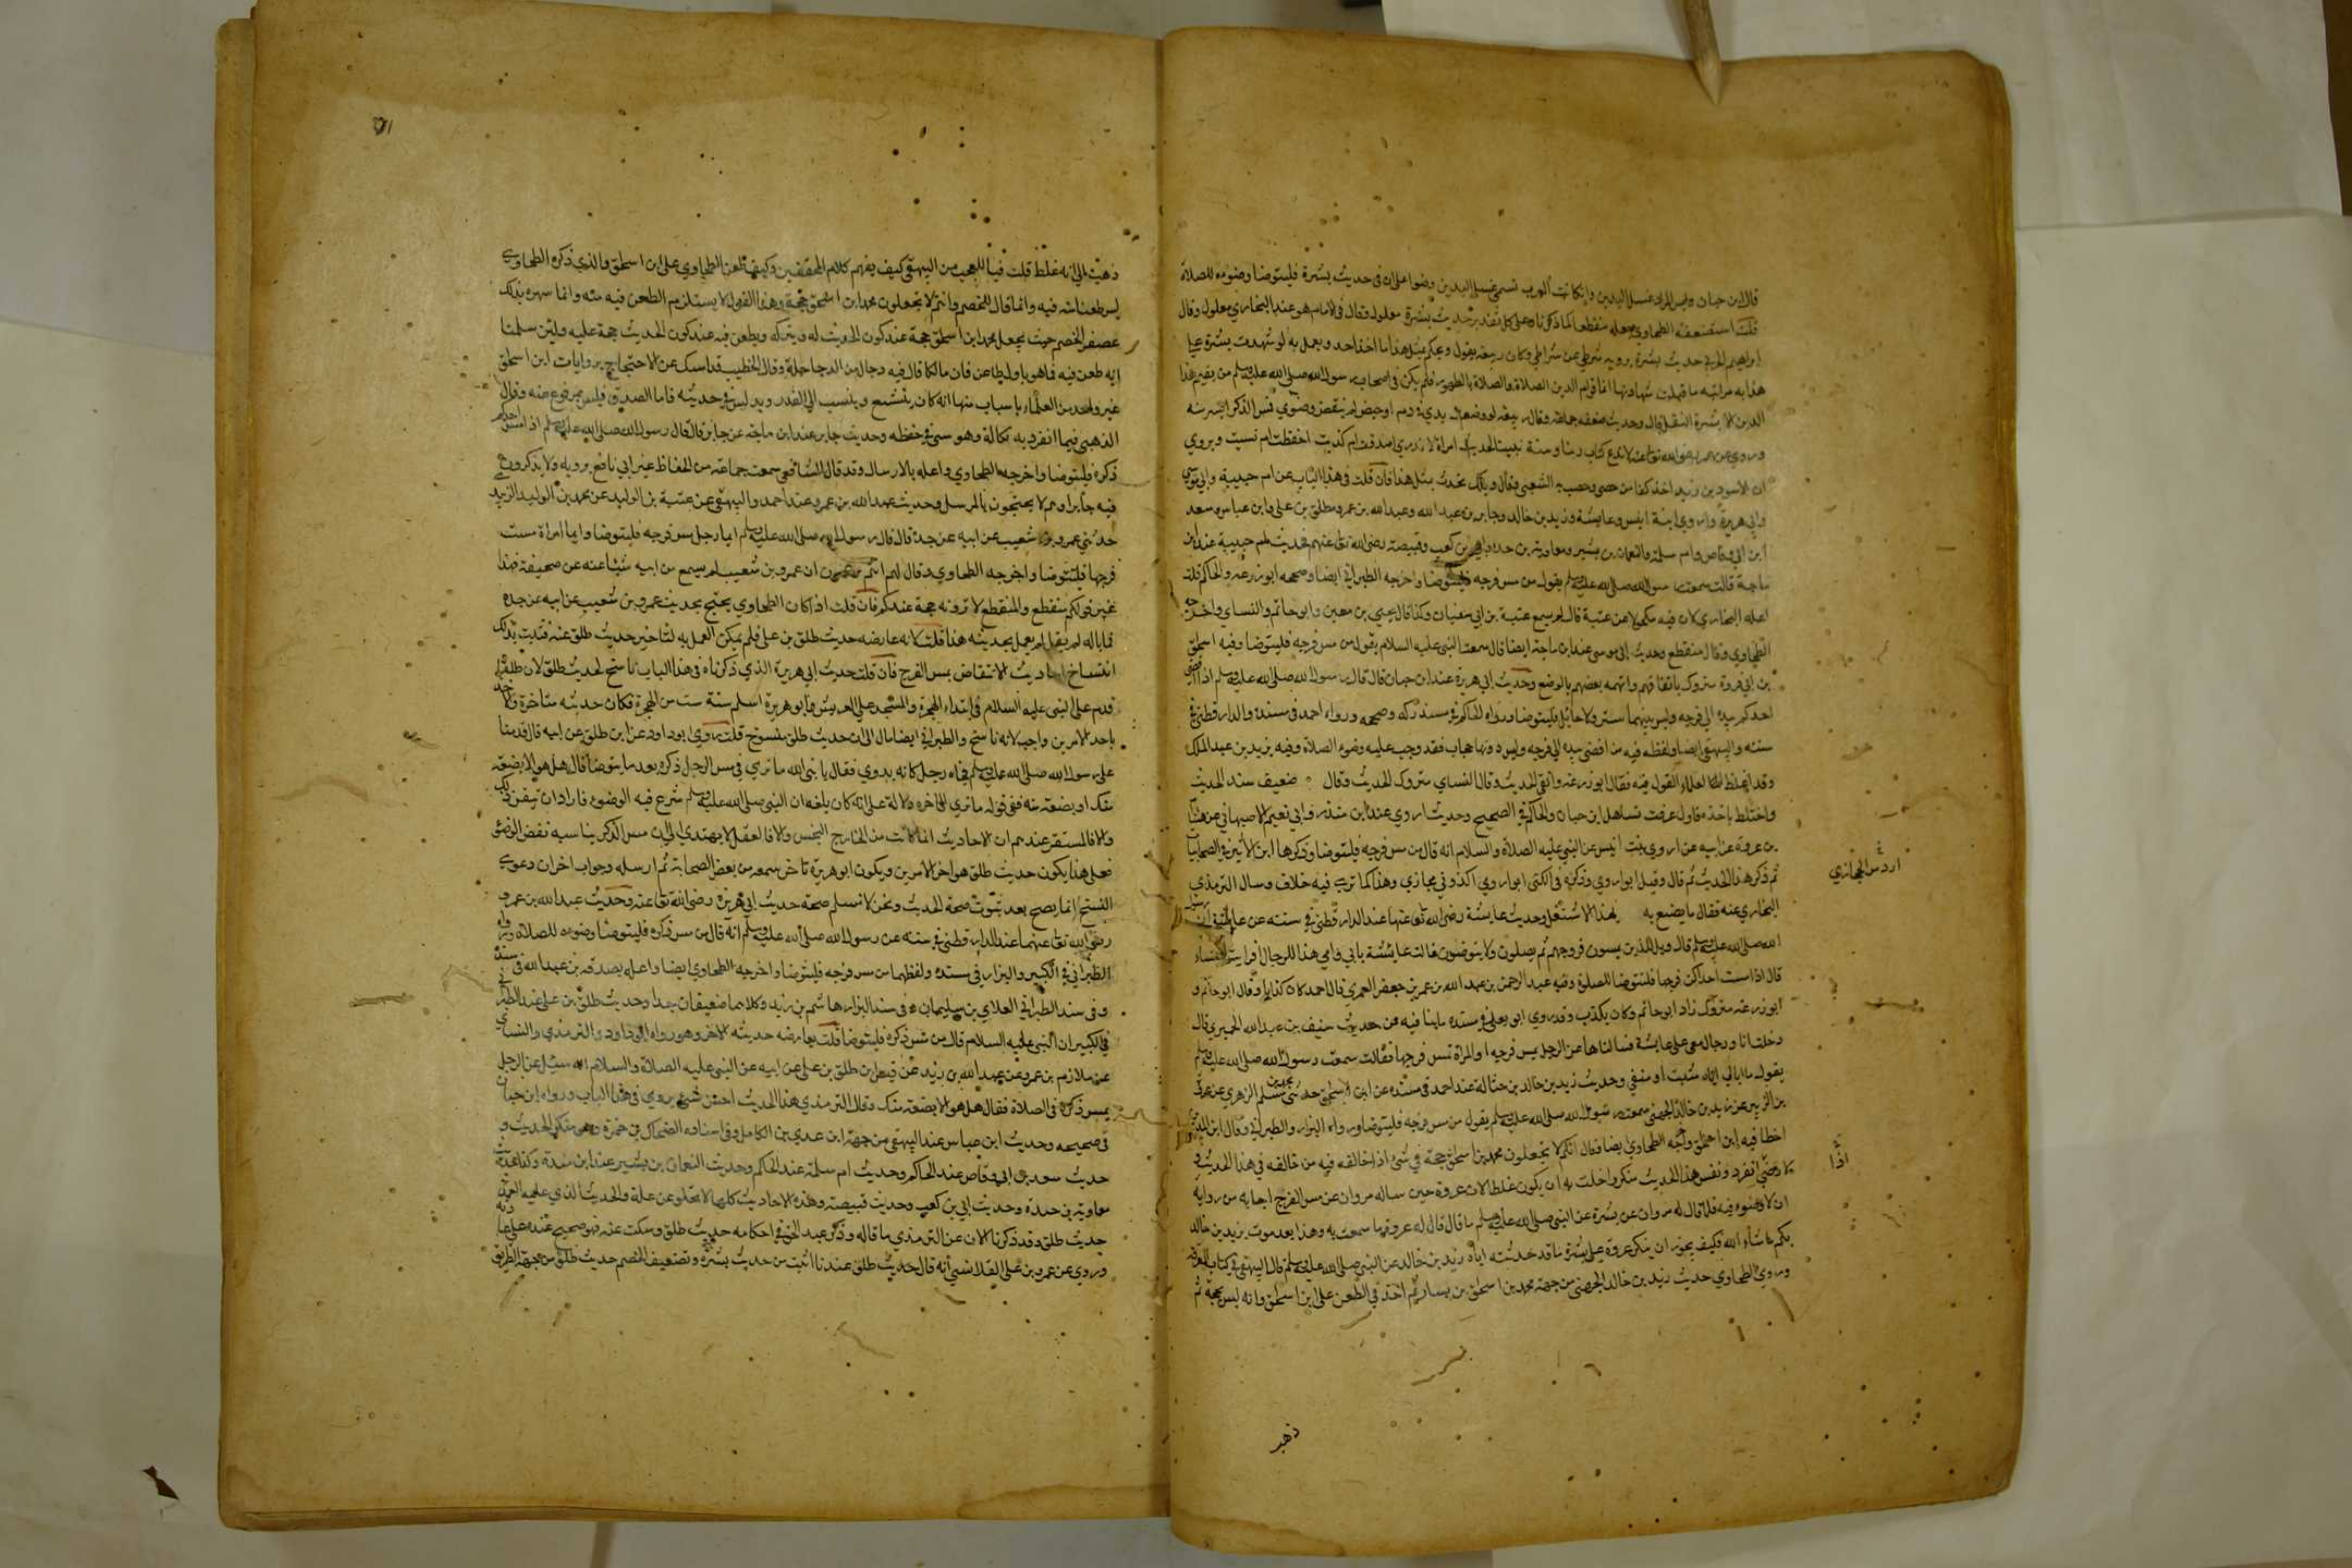 قال ابن حبان وليس المراد غسل اليدين وان كانت العرب تسمي غسل اليدين وضوا على ان في حديث بسرة فليتوضا وضوءه للصلاة
قلت استضعفه الطحاوي وجعله منقطعا كما ذكرناه وعلى كل تقدير حديث بسرة معلول وقال في الامام هو عند البخاري معلول وقال
ابراهيم الحربي حديث بسرة يرويه شرطي عن شرطي وكان ربيعة يقول ويحكم مثل هذا ما اخذ احد ويعمل به لو شهدت بسرة على
هذا به مراتبه ما قبلت شهادتها انما قوام الدين الصلاة والصلاة بالطهور فلم يكن في اصحاب رسول الله صلى الله عليه وسلم من يقيم هذا
الدين الا بسرة قال وحديث ضعفه جماعة وقال ربيعة لو وضعت يدي في دم او حيض لم ينقض وضوي فمس الذكر ايسر منه
وروي عن عمر رضي الله تعالى عنه لا ندع كتاب ربنا وسنة نبينا لحديث امراة لا ندري اصدقت ام كذبت احفظت ام نسيت ويروي
ان الاسود بن يزيد اخذ كفا من حصى وحصب به الشعبي وقال ويلك تحدث بمثل هذا فان قلت في هذا الباب عن ام حبيبة وابي موسى
وابي هريرة واروى ابنة انيس وعايشة وزيد بن خالد وجابر بن عبد الله وعبد الله بن عمرو وطلق بن علي وابن عباس وسعد
ابن ابي وقاص وام سلمة والنعمان بن بشير ومعاوية بن حيدة وابي بن كعب وقبيصة رضي الله تعالى عنهم فحديث ام حبيبة عند ابن
ماجة قالت سمعت رسول الله صلى الله عليه وسلم يقول من مس فرجه فليتوضا واخرجه الطبراني ايضا وصححه ابو زرعة والحاكم قلت
اعله البخاري لان فيه مكحولا عن عنبسة قال لم يسمع عنبسة بن ابي سفيان وكذا قال يحيى بن معين وابو حاتم والنساي واخرجه
الطحاوي وقال منقطع وحديث ابي موسى عند ابن ماجة ايضا قال سمعت النبي عليه السلام يقول من مس فرجه فليتوضا وفيه اسحاق
بن ابي فروة متروك باتفاقهم واتهمه بعضهم بالوضع وحديث ابي هريرة عند ابن حبان قال قال رسول الله صلى الله عليه وسلم اذا افضى
احدكم بيده الى فرجه وليس بينهما ستر ولا حايل فليتوضا ورواه الحاكم في مستدركه وصححه ورواه احمد في مسنده والدار قطني في
سننه والبيهقي ايضا ولفظه فيه من افضى بيده الى فرجه وليس دونها حجاب فقد وجب عليه وضوء الصلاة وفيه يزيد بن عبد الملك
وقد اغلظ العلماء القول فيه فقال ابو زرعة واهي الحديث وقال النساي متروك الحديث وقال ضعيف سند الحديث
واختلط باخره فاول عرفت تساهل ابن حبان والحاكم في الصحيح وحديث اروى عند ابن منده وابي نعيم الاصبهاني عن هشام
بن عروة عن ابيه عن اروى بنت انيس عن النبي عليه الصلاة والسلام انه قال من مس فرجه فليتوضا وذكرها ابن الاثير في الصحابيات
ثم ذكر هذا الحديث ثم قال وقيل ابو اروى وذكره في الكنى ابو اروى الدوسي حجازي وهذا كما ترى فيه خلاف وسال الترمذي
البخاري عنه فقال ما يصنع به هذا لا تشتغل وحديث عايشة رضي الله تعالى عنها عند الدار قطني في سننه عن عايشة ان رسول
الله صلى الله عليه وسلم قال ويل للذين يمسون فروجهم ثم يصلون ولا يتوضؤن قالت عايشة بابي وامي هذا للرجال افرايت النساء
قال اذا مست احداكن فرجها فلتتوضا للصلوة وفيه عبد الرحمن بن عبد الله بن عمر بن حفص العمري قال احمد كان كذابا وقال ابو حاتم و
ابو زرعة متروك زاد ابو حاتم وكان يكذب وقد روى ابو يعلى في مسنده ما ينافيه من حديث سيف بن عبد الله الحميري قال
دخلت انا ورجال معي على عايشة فسالناها عن الرجل يمس فرجه او المراة تمس فرجها فقالت سمعت رسول الله صلى الله عليه وسلم
يقول ما ابالي اياه مسست او انفي وحديث زيد بن خالد بن حثالة عند احمد في مسنده عن ابن اسحاق حدثني محمد بن مسلم الزهري عن عروة
بن الزبير عن زيد بن خالد الجهني سمعت رسول الله صلى الله عليه وسلم يقول من مس فرجه فليتوضا ورواه البزار والطبراني وقال ابن المديني
اخطا فيه ابن اسحاق واعله الطحاوي ايضا وقال انكم لا تجعلون محمد بن اسحاق حجة في شئ اذا خالفه فيه من خالفه في هذا الحديث و
لا اذا انفرد ونفس هذا الحديث منكر واخلق به ان يكون غلطا لان عروة حين ساله مروان عن مس الفرج اجابه من رايه
ان لا وضوء فيه فلما قال له مروان عن بسرة عن النبي صلى الله عليه وسلم ما قال قال له عروة ما سمعت به وهذا بعد موت زيد بن خالد
بكم ما شاء الله فكيف يجوز ان ينكر عروة على بسرة ما قد حدثته اياه زيد بن خالد عن النبي صلى الله عليه وسلم قال البيهقي في كتاب المعرفة
وروى الطحاوي حديث زيد بن خالد الجهني من جهة محمد بن اسحاق بن يسار ثم اخذ في الطعن على ابن اسحاق وانه ليس بحجة ثم
ذهب
ذهب الى انه غلط قلت فيا للعجب من البيهقي كيف يفهم كلام المحققين وكيف طعن الطحاوي على ابن اسحاق والذي ذكره الطحاوي
ليس طعنا منه فيه وانما قال للخصم وانتم لا تجعلون محمد ابن اسحاق حجة وهذا القول لا يستلزم الطعن فيه منه وانما شهره بذلك
عصف الخصم حيث يجعل محمد ابن اسحاق حجة عند كون الحديث له ويتركه ويطعن فيه عند كون الحديث حجة عليه ولئن سلمنا
انه طعن فيه فما هو باول طاعن فان مالكا قال فيه دجال من الدجاجلة وقال الخطيب قد امسك عن الاحتجاج بروايات ابن اسحاق
غير واحد من العلماء باسباب منها انه كان يتشيع وينسب الى القدر ويدلس في حديثه فاما الصدق فليس بمدفوع عنه وقال
الذهبي فيما انفرد به نكارة وهو سئ في حفظه وحديث جابر عند ابن ماجة عن جابر قال قال رسول الله صلى الله عليه وسلم اذا مس احدكم
ذكره فليتوضا واخرجه الطحاوي واعله بالارسال وقد قال الشافعي سمعت جماعة من الحفاظ غير ابن نافع يرويه ولا يذكرون
فيه جابرا وهم لا يحتجون بالمرسل وحديث عبد الله بن عمرو عند احمد والبيهقي عن عتبة بن الوليد عن محمد بن الوليد الزبيدي
حدثني عمرو بن شعيب عن ابيه عن جده قال قال رسول الله صلى الله عليه وسلم ايما رجل مس فرجه فليتوضا وايما امراة مست
فرجها فلتتوضا واخرجه الطحاوي وقال لهم انتم تزعمون ان عمرو بن شعيب لم يسمع من ابيه شيئا عنه عن صحيفة فهذا
غير قولكم منقطع والمنقطع لا ترونه حجة عندكم فان قلت اذا كان الطحاوي يحتج بحديث عمرو بن شعيب عن ابيه عن جده
فما باله لم يقل لم يعمل بحديثه هنا قلت لانه عارضه حديث طلق بن علي فلم يمكن العمل به لتاخير حديث طلق عنه فثبت بذلك
انتساخ احاديث الانتقاض بمس الفرج فان قلت حديث ابي هريرة الذي ذكرناه في هذا الباب ناسخ لحديث طلق لان طلقا
قدم على النبي عليه السلام في ابتداء الهجرة والمسجد على العريش وابو هريرة اسلم سنة ست من الهجرة فكان حديثه متاخرا والاخذ
باحد الامرين واجب لانه ناسخ والطبراني ايضا مال الى ان حديث طلق منسوخ قلت روى ابو داود عن ابن طلق عن ابيه قال قدمنا
على رسول الله صلى الله عليه وسلم فجاء رجل كانه بدوي فقال يا نبي الله ما ترى في مس الرجل ذكره بعد ما يتوضا قال هل هو الا بضعة
منك او بضعة منه ففي قوله ما ترى الى اخره دلالة على انه كان بلغه ان النبي صلى الله عليه وسلم شرع فيه الوضوء فاراد ان تيقن ذلك
والا فالمستقر عندهم ان الاحاديث انما كانت من الخارج النجس والا فالعقل لا يهتدي الى ان مس الذكر يناسبه نقض الوضوء
فعلى هذا يكون حديث طلق هو اخر الامرين ويكون ابو هريرة تاخر سمعه من بعض الصحابة ثم ارسله وجواب اخر ان دعوى
النسخ انما يصح بعد ثبوت صحة الحديث ونحن لا نسلم صحة حديث ابي هريرة رضي الله تعالى عنه وحديث عبد الله بن عمرو
رضي الله تعالى عنهما عند الدار قطني في سننه عن رسول الله صلى الله عليه وسلم انه قال من مس ذكره فليتوضا وضوءه للصلاة ورواه
الطبراني في الكبير والبزار في مسنده ولفظهما من مس فرجه فليتوضا واخرجه الطحاوي ايضا واعله بصدقة بن عبد الله في سنده
وفي سند الطبراني العلاي بن سليمان وفي سند البزار هاشم بن زيد وكلاهما ضعيفان جدا وحديث طلق بن علي عند الطبراني
في الكبير ان النبي عليه السلام قال من مس ذكره فليتوضا قلت يعارضه حديثه الاخر وهو رواه ابو داود والترمذي والنساي
عن ملازم بن عمرو عن عبد الله بن زيد عن قيس بن طلق بن علي عن ابيه عن النبي عليه الصلاة والسلام انه سئل عن الرجل
يمس ذكره في الصلاة فقال هل هو الا بضعة منك وقال الترمذي هذا الحديث احسن شئ يروى في هذا الباب ورواه ابن حبان
في صحيحه وحديث ابن عباس عند البيهقي من جهة ابن عدي بن الكامل وفي اسناده الضحاك بن حمزة وهو منكر الحديث و
حديث سعد بن ابي وقاص عند الحاكم وحديث ام سلمة عند الحاكم وحديث النعمان بن بشير عند ابن مندة وكذا عنده
معاوية بن حيدة وحديث ابي بن كعب وحديث قبيصة وهذه الاحاديث كلها لا تخلو عن علة والحديث الذي عليه العمدة
حديث طلق وقد ذكرنا الان عن الترمذي ما قاله وذكر عبد الحق في احكامه حديث طلق وسكت عنه فهو صحيح عنده على عادته
وروي عن عمرو بن علي الفلاس انه قال حديث طلق عندنا اثبت من حديث بسرة وتضعيف الخصم حديث طلق من جهة الطريق